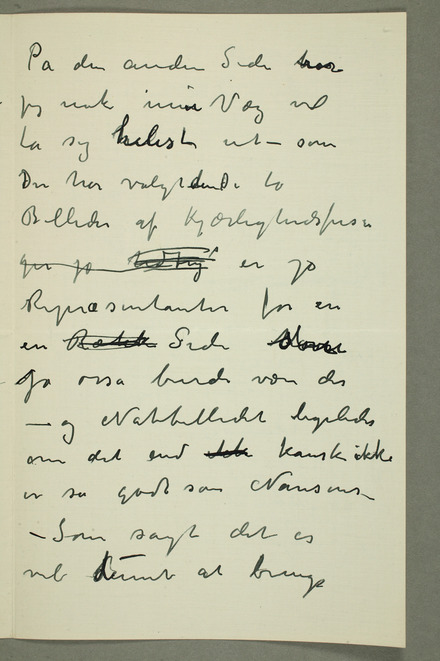 På den anden Side har
jeg nok min Væg vil
ta sig helest ut – som
Du har valgt de to
Billeder af Kjærlighedsfrisen
er jo
Repræsentanter for en
en Side
Ja ossa burde være der
– og Natbilledet ligeledes
om det end kanske ikke
er så godt som Nansens –
– Som sagt det es
vel bemt at bringe